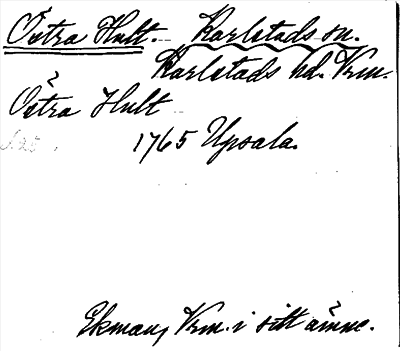 Östra Hult. Karlstads sn.
Karlstads hd. Vrm.
Östra Hult
1765 Upsala.
Ekman, Vrm. i sitt ämne.